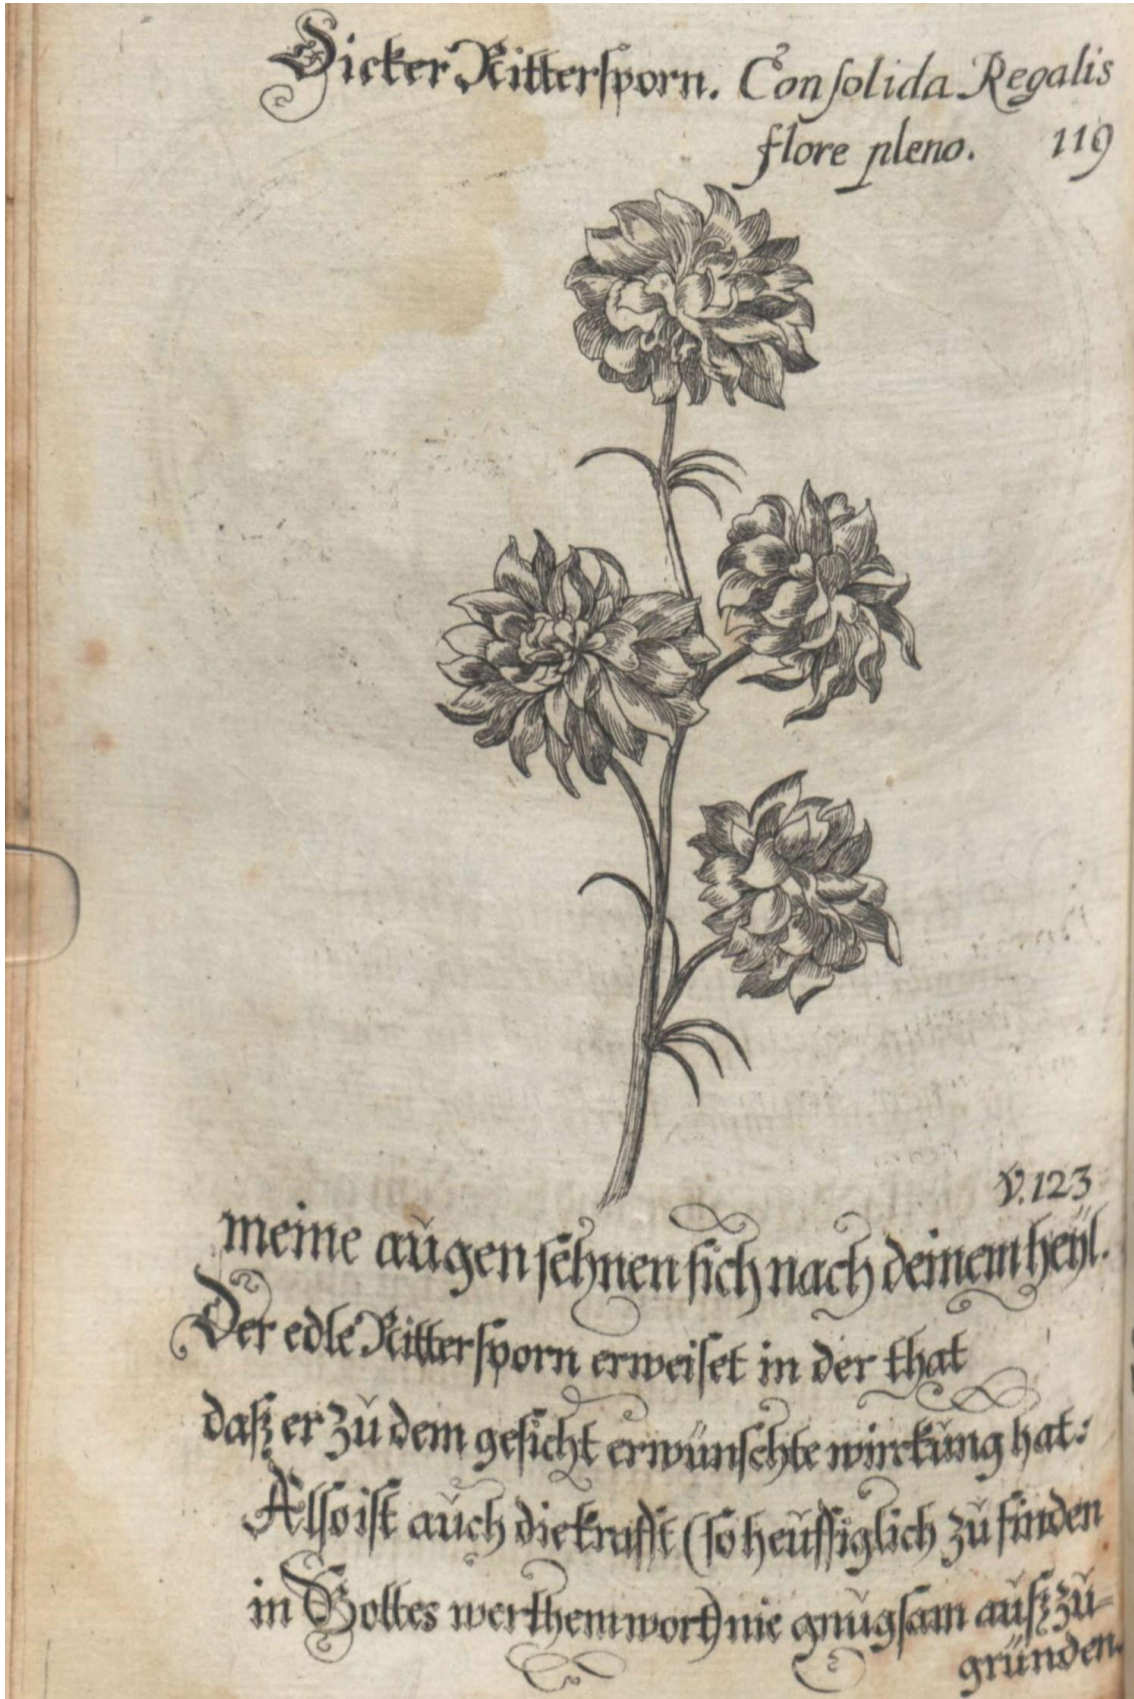 Dicker Ritterſporn. Conſolida Regalis
flore pleno. 119
V. 123
meine augen ſehnen ſich nach deinem heÿl.
Der edle Ritterſporn erweiſet in der that
daſz er zŭ dem geſicht erwünſchte wirckŭng hat:
Alſo iſt aŭch die krafft (ſo heŭffiglich zŭ finden
in Gottes werthem wort) nie gnŭgſam aŭſz zŭ-
gründen.